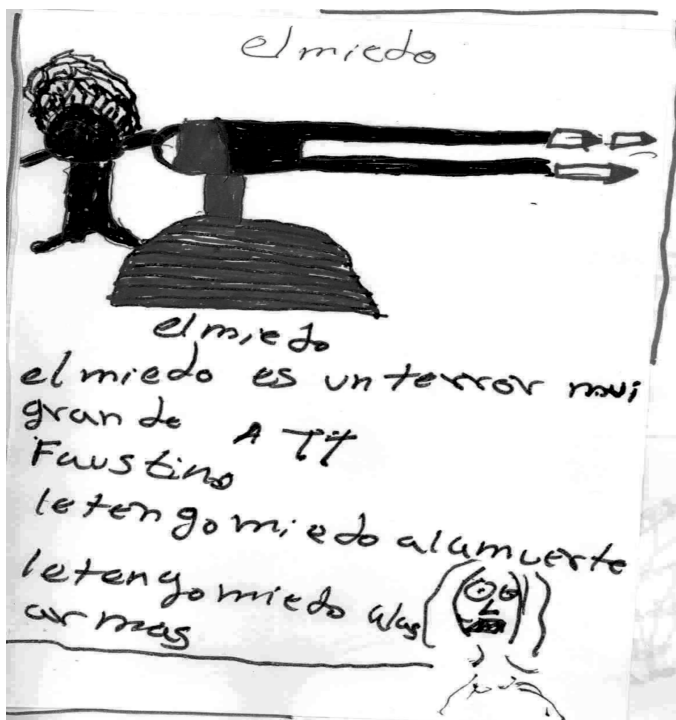 el miedo
el miedo
el miedo es un terror mui
grande ATT
Faustino
le tengo miedo a la muerte
le tengo miedo a las
armas